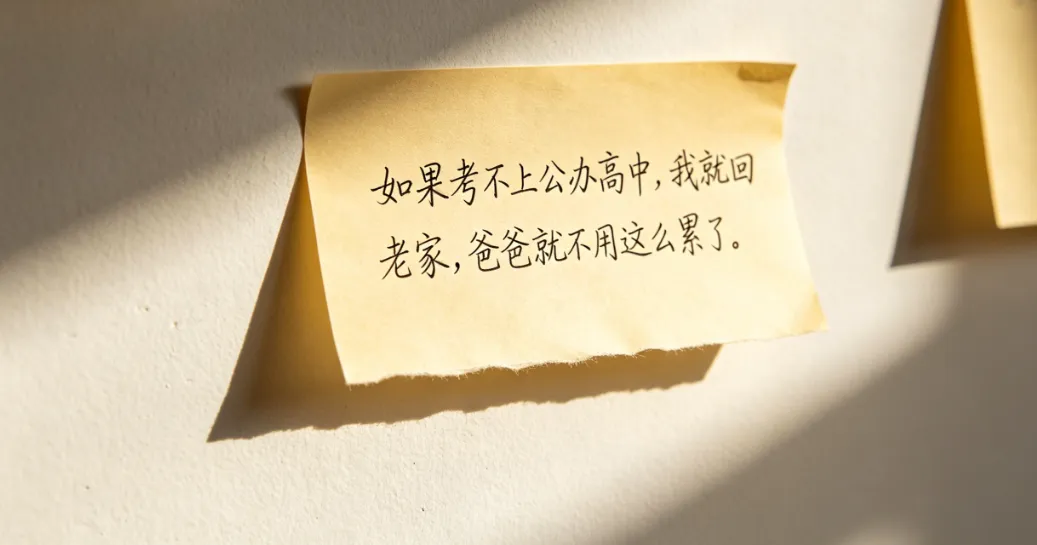 如果考不上公办高中,我就回
老家,爸爸就不用这么累了。